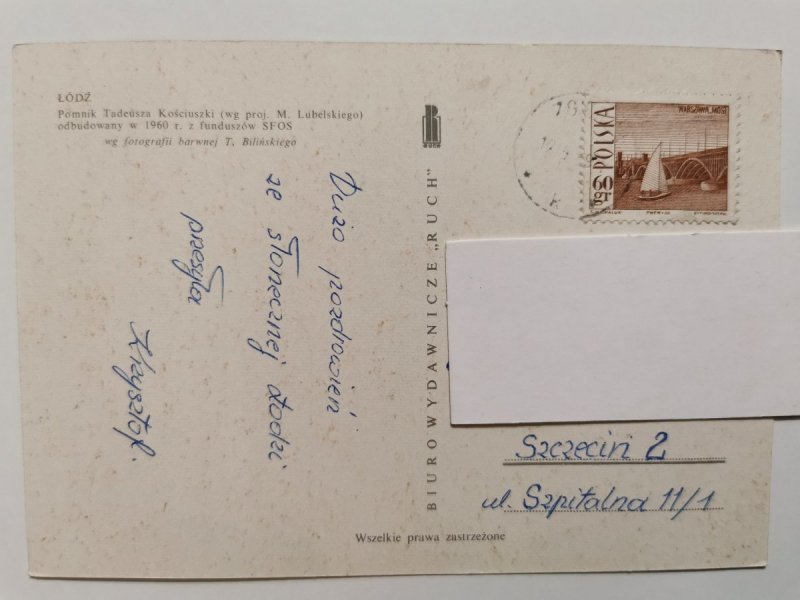 ŁÓDŹ
Pomnik Tadeusza Kościuszki (wg proj. M. Lubelskiego)
odbudowany w 1960 r. z funduszów SFOS
wg fotografii barwnej T. Bilińskiego
Dużo pozdrowień
ze słonecznej Łodzi
przesyła
Krzysztof.
RUCH
BIURO WYDAWNICZE „RUCH"
Wszelkie prawa zastrzeżone
WARSZAWA, MOST
POLSKA
60 gr
Szczecin 2
ul. Szpitalna 11/1